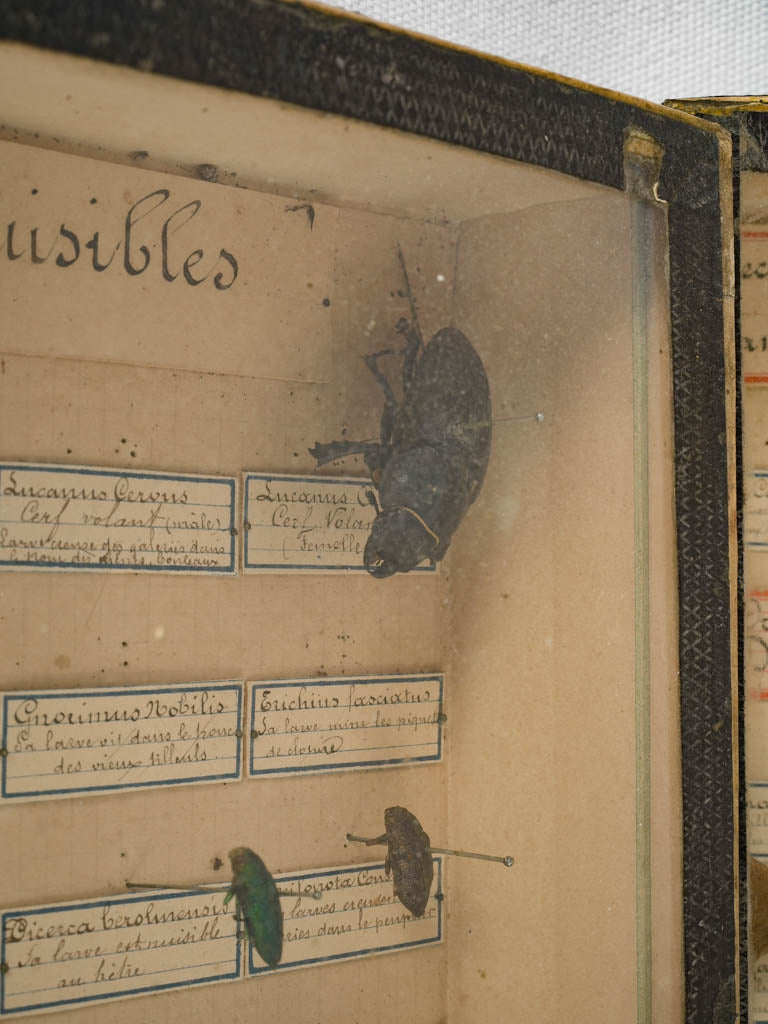 uisibles
Lucanus Cervus
Cerf volant (mâle)
Larve creuse des galeries dans
le
Lucanus C
Cerf Volan
(Femelle
Gnorimus Nobilis
Sa larve vit dans le tronc
des vieux tilleuls.
Trichius fasciatus
Sa larve mine les piquets
de cloture
Dicerca berolinensis
Sa larve est nuisible
au hêtre
Cons
larves creusent
dans le peuplier